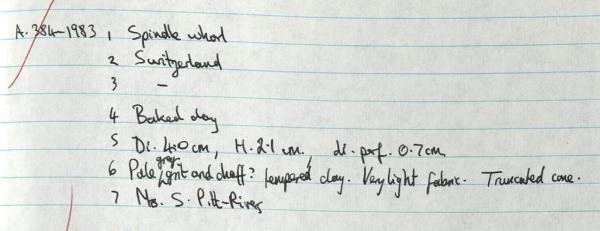 A. 384-1983 1 Spindle whorl
2 Switzerland
3 -
4 Baked clay
5 Di. 4.0 cm, H. 2.1 cm, di. perf. 0.7 cm
6 Pale grey, grit and chaff? tempered clay. Very light fabric. Truncated cone.
7 Mrs. S. Pitt-Rivers